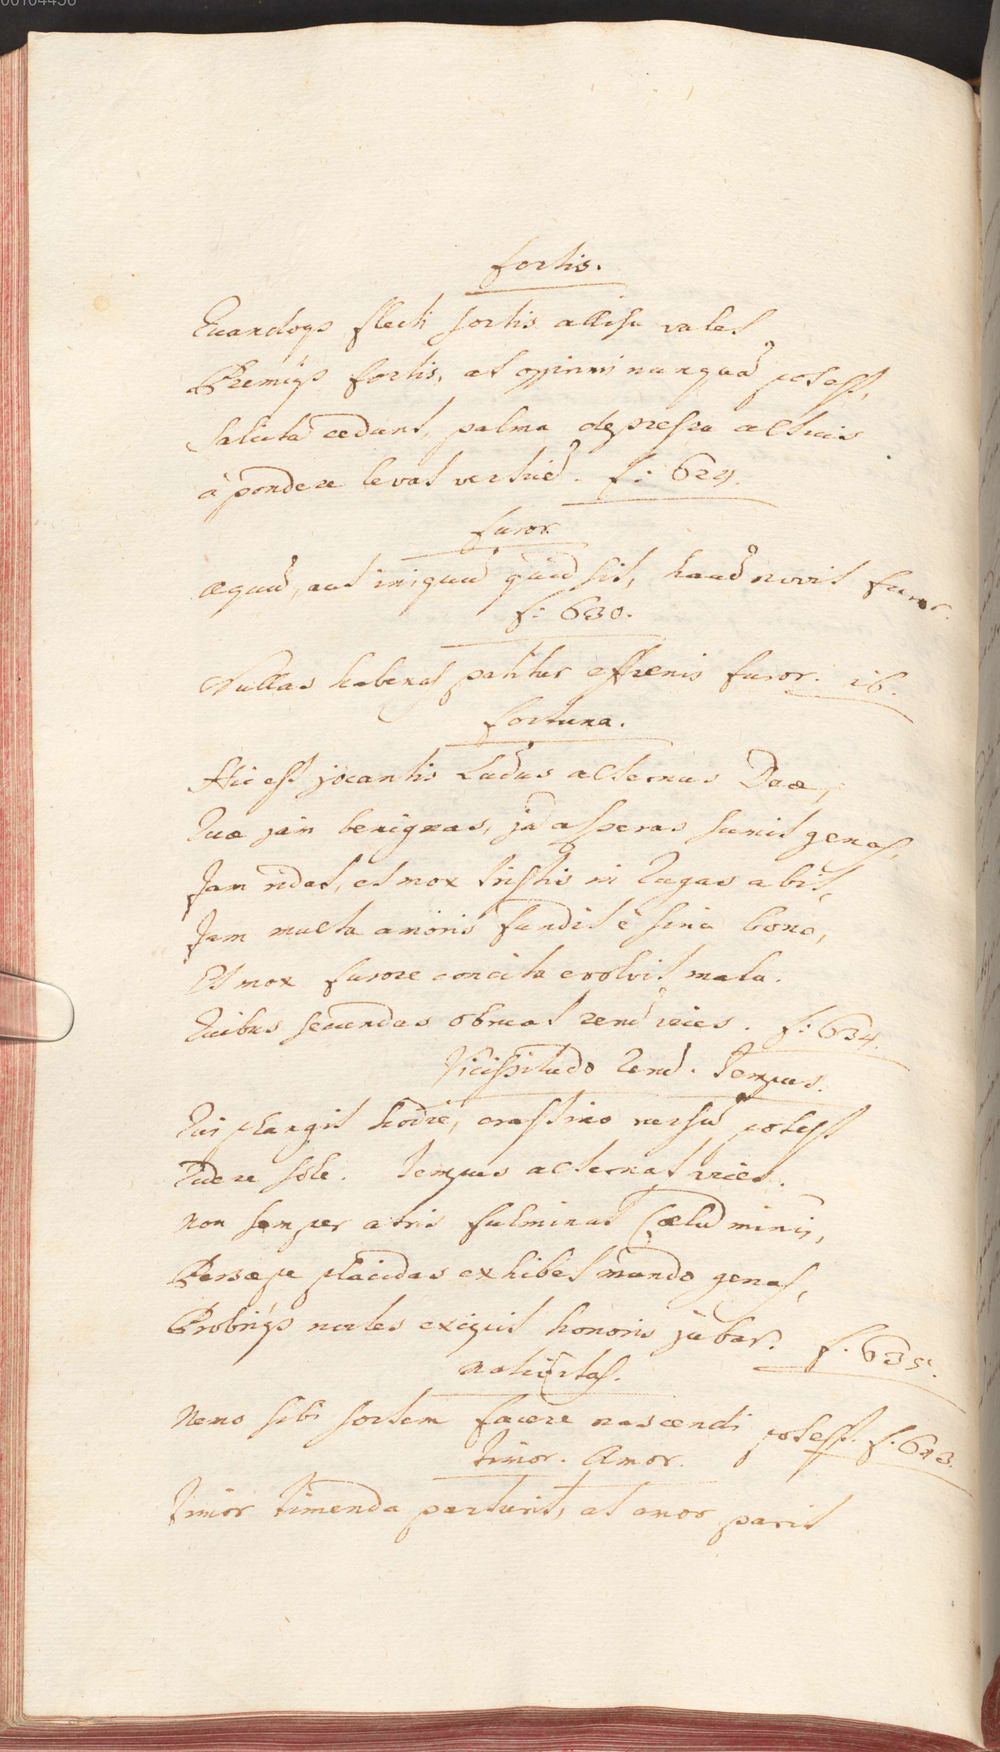 00104436
fortis.
flecti sortis allisu valet
fortis, at opprimi nunquã potest,
Saluta cedant, palma depressa altius
à pondere levat verticẽ. f: 629.
furor
æquũ, aut iniquũ quid sit, haud novit furor.
f: 630.
Nullas habenas patitur effrenis furor. ib.
fortuna.
Hic est jocantis Ludus alternus Deæ,
Quæ jam benignas, jã asperas sumit genas,
Jam ridet, et mox tristis in rugas abit,
Jam multa amoris fundit è sinu bona,
Et mox furore concita evolvit mala.
Quibus secundas obruat rerũ vices. f: 634.
Vicissitudo rerũ. Tempus.
Qui plangit hodie, crastino rursũ potest
ridere sole. Tempus alternat vices.
Non semper atris fulminat Cælũ minis,
Persæpe placidas exhibet mundo genas,
exiguit honoris jubar. f. 635.
Nemo sibi sortem facere nascendi potest. f. 643.
Timor. Amor.
Timor timenda parturit, at amor parit